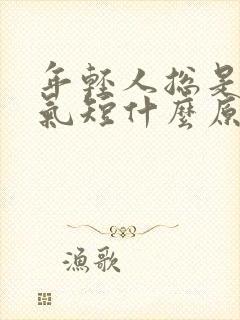 年輕人總是
氣短什麼原
漁歌